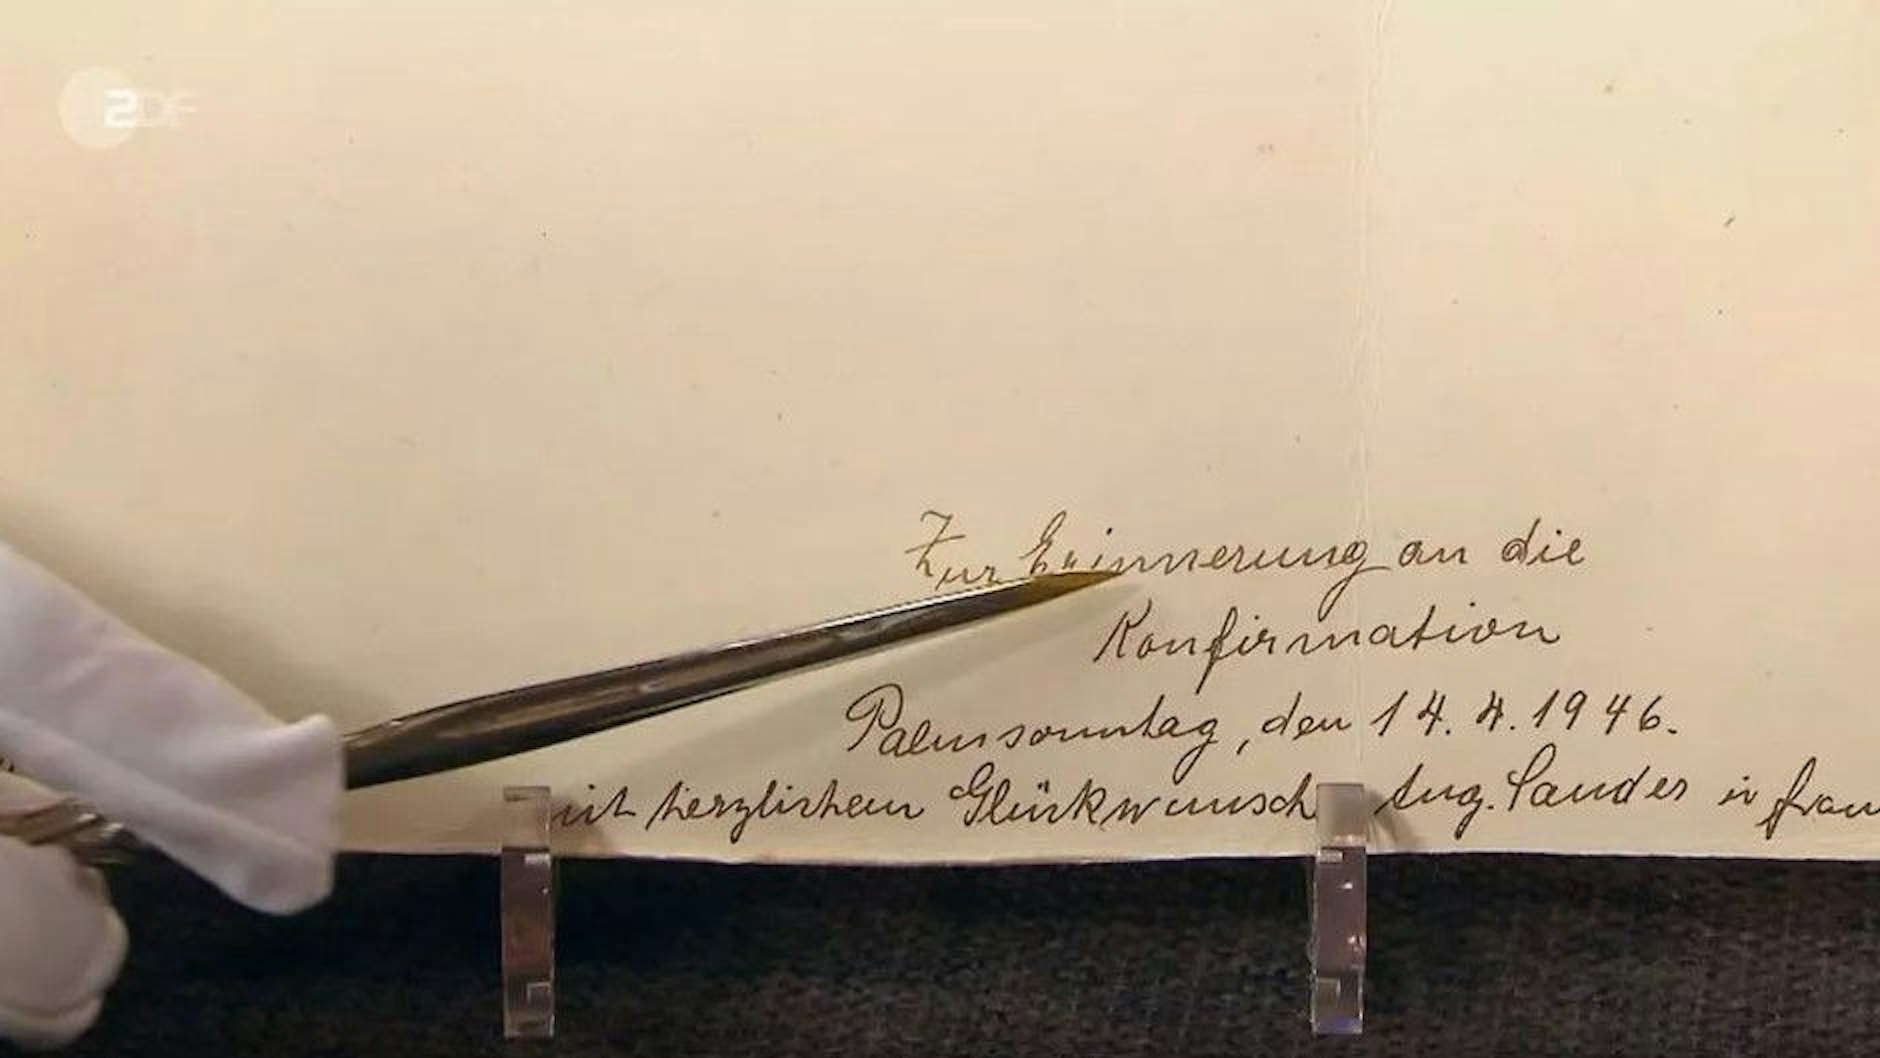 ZDF
Zur Erinnerung an die
Konfirmation
Palmsonntag, den 14.4.1946.
mit herzlichem Glückwunsch Aug. Sander u frau